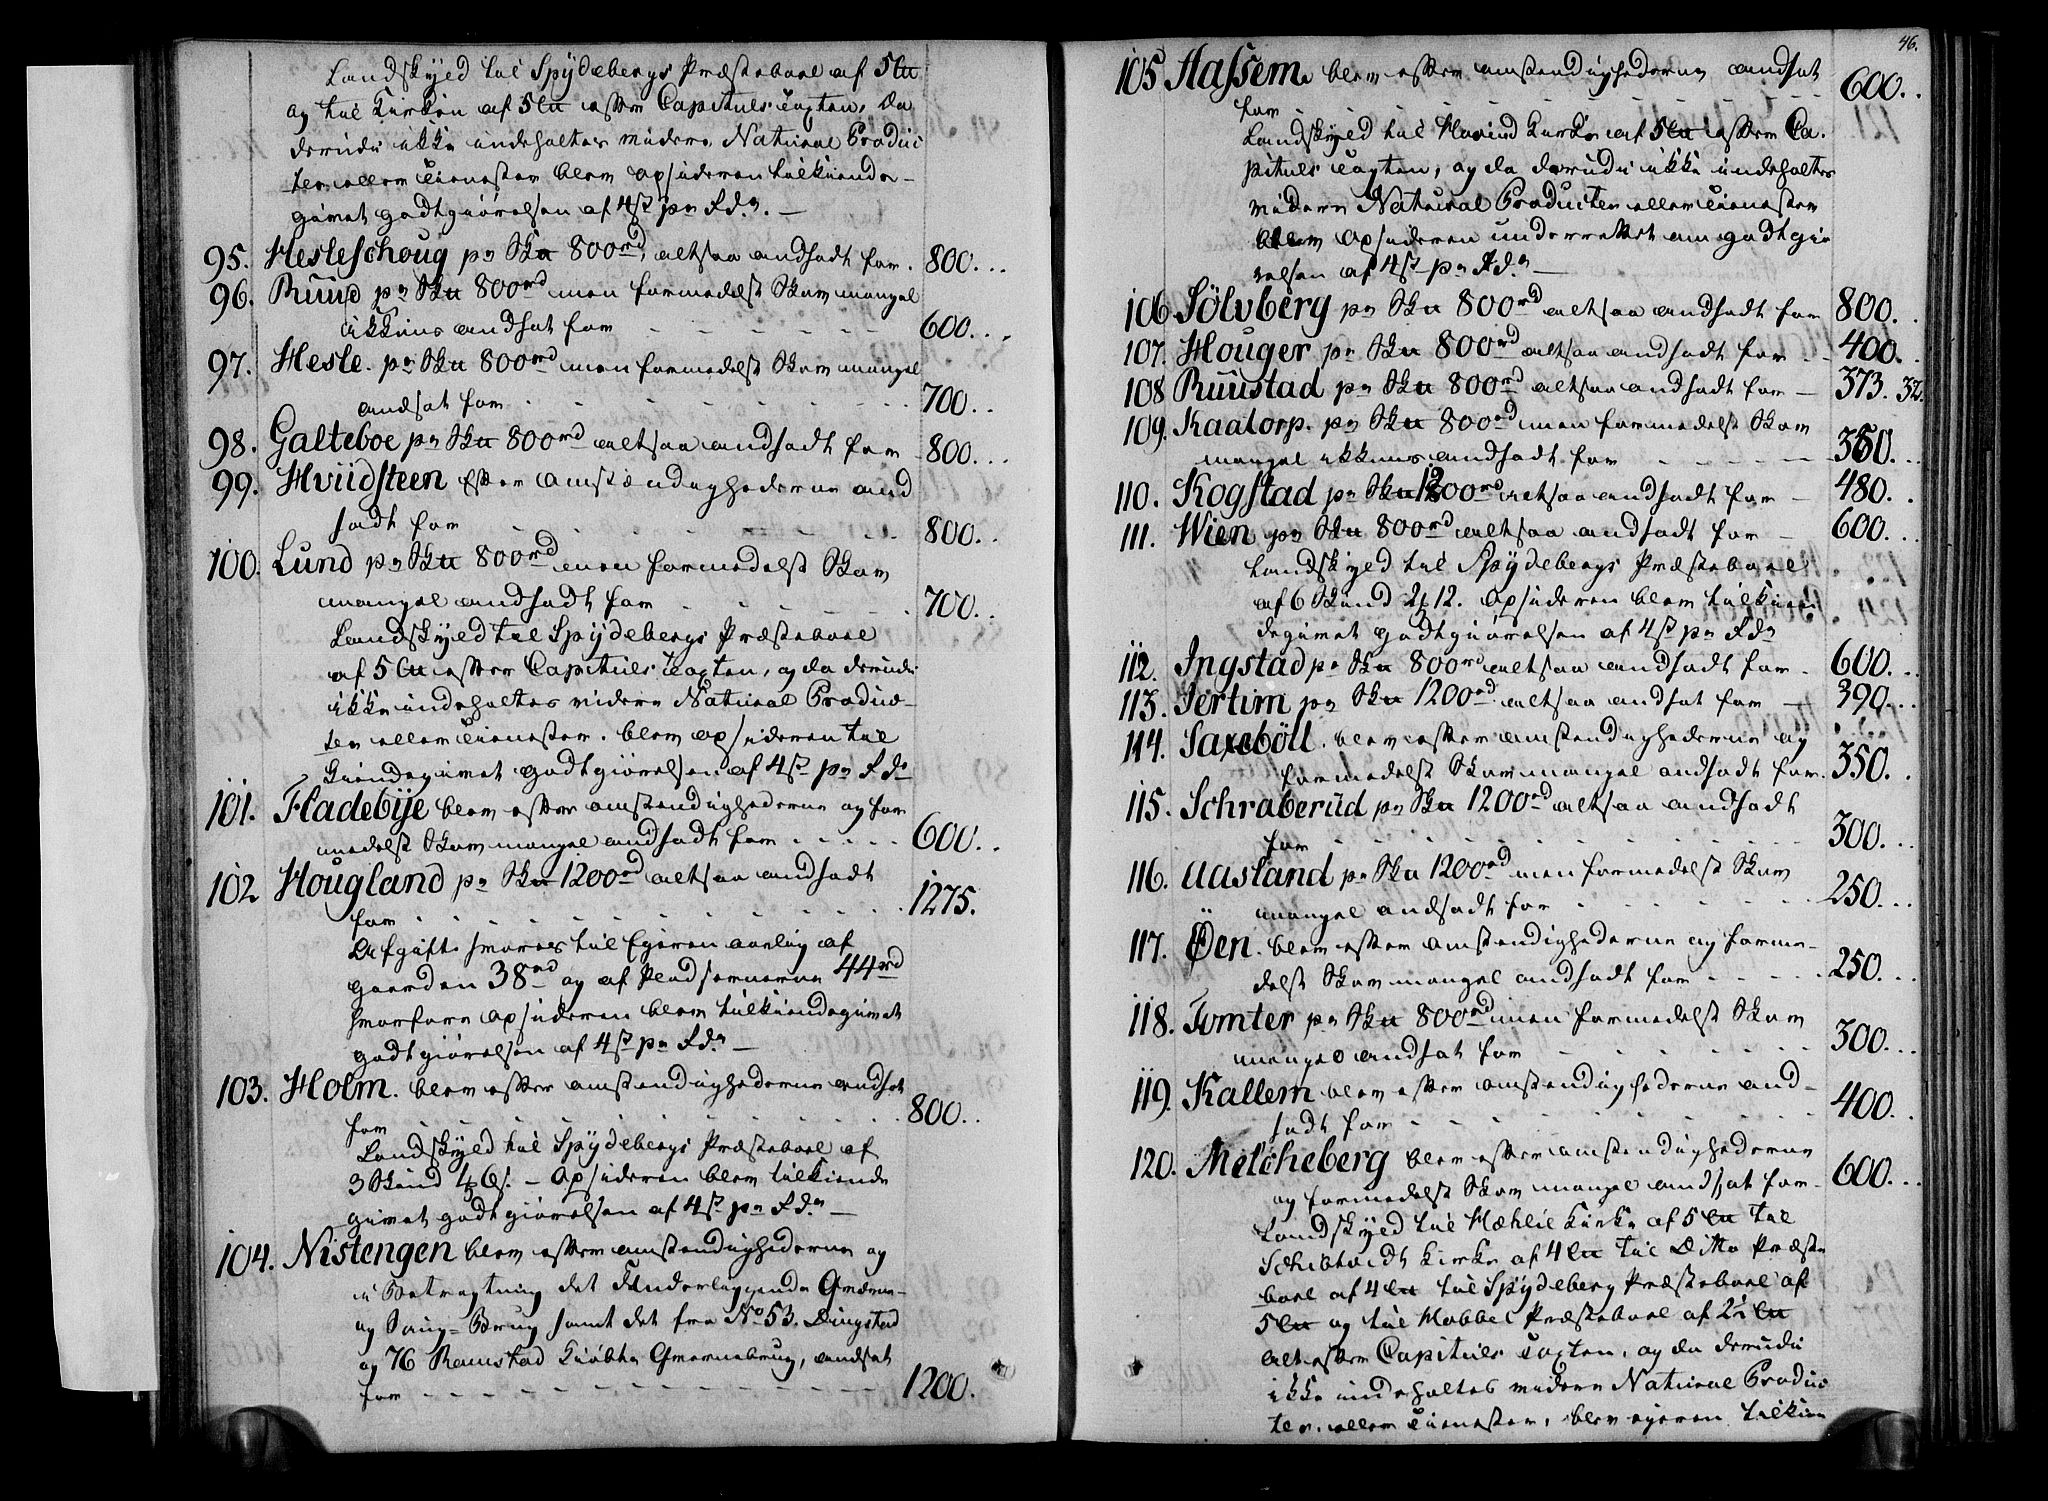 Landskyld til Spÿdebergs Præsteboel af 5 L℔
og til Kirken af 5 L℔ efter Capituls Taxten, da
derudi ikke indeholtes videre Natural Produc
ter eller Tienester blev Opsideren tilkiende-
givet godtgiørelsen af 4 st pr Rd. —
95. Hesleschoug pr Sk℔ 800rd, altsaa andsadt for . 800...
96. Ruud pr Sk℔ 800rd men formedelst Skov mangel
ikkuns andsat for - - - - - 600...
97. Hesle. pr Sk℔ 800rd men formedelst Skov mangel
andsat for - - - - - 700..
98. Galteboe pr Sk℔ 800rd altsaa andsadt for - 800...
99. Hviidsteen Efter omstændighederne and
sadt for - - - - - 800..
100. Lund pr Sk℔ 800rd men formedelst Skov
mangel andsadt for - - - - - 700..
Landskyld til Spÿdebergs Præsteboel
af 5 L℔ efter Capituls Taxten, og da derudi
ikke indeholtes videre Natural Produc-
ter eller Tienester. blev opsideren til
kiendegivet godtgiørelsen af 4 st pr Rd.
101. Fladebÿe blev efter omstændighederne og for
medelst Skov mangel andsadt for . . . . . 600..
102 Hougland pr Sk℔ 1200rd altsaa andsadt
for - - - - - 1275.
Afgift svares til Eyeren aarlig af
gaarden 38rd og af Pladserne 44rd
hvorfore opsideren blev tilkiendegivet
godtgiørelsen af 4 st pr Rd. —
103. Holm. blev efter omstændighederne andsat
for - - - - - 800..
Landskyld til Spÿdebergs Præsteboel af
3 Skind - Opsideren blev tilkiende
givet godtgiørelsen af 4 st pr Rd. —
104. Nistengen blev efter omstændighederne og
i Betragtning det Underliggende Qværne-
og Saug-Brug samt det fra No 53. Dingstad
og 76 Ramstad kiøbte Qvernebrug, andsat
for - - - - - 1200.
46.
105 Hassem. blev efter omstændighederne andsat
for - - - - - 600..
Landskyld til Hovind Kirke af 5 L℔ efter Ca-
pituls Taxten, og da derudi ikke indeholtes
videre Natural Producter eller Tienester
blev Opsideren underrettet om godtgiø
relsen af 4 st pr Rd. —
106. Sölvberg pr Sk℔ 800rd altsaa andsadt for 800..
107. Houger pr Sk℔ 800rd altsaa andsadt for - - 400..
108 Ruustad pr Sk℔ 800rd altsaa andsadt for — 373. 32.
109. Kaatorp. pr Sk℔ 800rd men formedelst Skov
mangel ikkuns andsadt for - - - - - 350...
110. Kogstad pr Sk℔ 1200rd altsaa andsadt for - 480..
111. Wien pr Sk℔ 800rd altsaa andsadt for - 600...
Landskyld til Spÿdebergs Præsteboel
af 6 Skind Opsideren blev tilkien
degivet godtgiørelsen af 4 st pr Rd.
112. Ingstad pr Sk℔ 800rd altsaa andsadt for - 600...
113. Jertim pr Sk℔ 1200rd altsaa andsat for - 390...
114. Saxeböll. blev efter omstændighederne og
formedelst Skov mangel andsadt for. 350..
115. Schraberud pr Sk℔ 1200rd altsaa andsadt
for - - - - - 300...
116. Aasland pr Sk℔ 1200rd men formedelst Skov
mangel andsadt for - - - - - 250...
117. Öen. blev efter omstændighederne og forme-
delst Skov mangel andsadt for - - - - - 250...
118. Tomter pr Sk℔ 800rd men formedelst Skov
mangel andsat for - - - - - 300...
119. Kallem blev efter omstændighederne and-
sadt for - - - - - 400...
120. Melcheberg blev efter omstændighederne
og formedelst Skov mangel andsat for - 600...
Landskyld til Hæhlie Kirke af 5 L℔ til
Schibtvedt Kirke af 4 L℔ til Ditto Præste
boel af 4 L℔ til Spÿdeberg Præsteboel af
5 L℔ og til Hobbel Præsteboel af 2½ L℔
alt efter Capituls Taxten, og da derudi
ikke indeholtes videre Natural Produc
ter. eller Tienester, blev eyeren tilkien